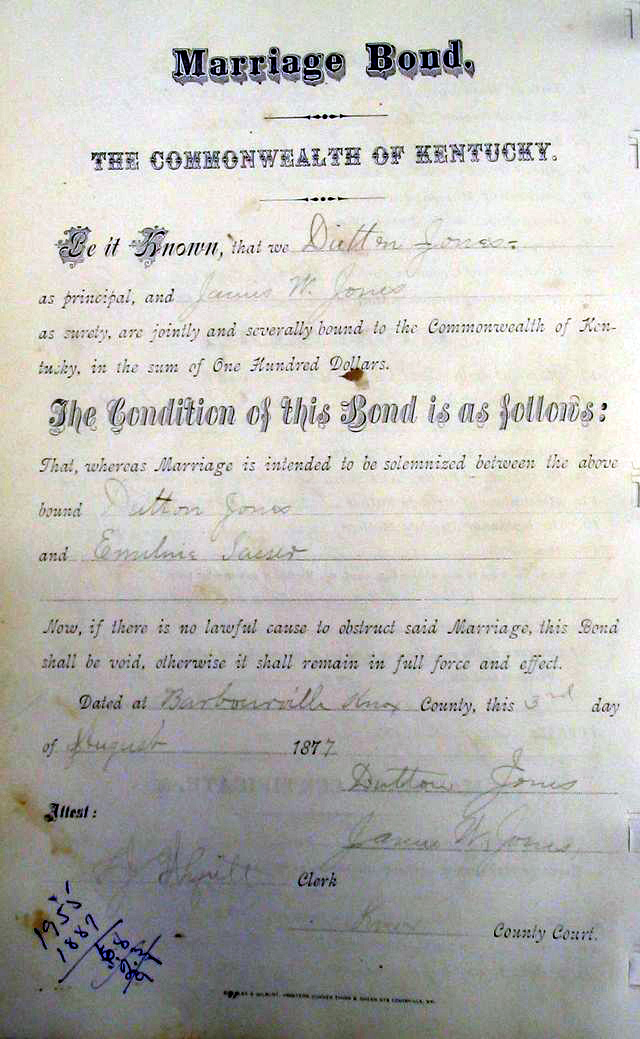 Marriage Bond.
THE COMMONWEALTH OF KENTUCKY.
Be it Known, that we Dutton Jones
as principal, and James W. Jones
as surety, are jointly and severally bound to the Commonwealth of Ken-
tucky, in the sum of One Hundred Dollars.
The Condition of this Bond is as follows:
That, whereas Marriage is intended to be solemnized between the above
bound Dutton Jones
and
Now, if there is no lawful cause to obstruct said Marriage, this Bond
shall be void, otherwise it shall remain in full force and effect.
Dated at Barbourville Knox County, this 3rd day
of August 1877
Dutton Jones
Attest:
James W. Jones
Clerk
Knox County Court.
1955
1887